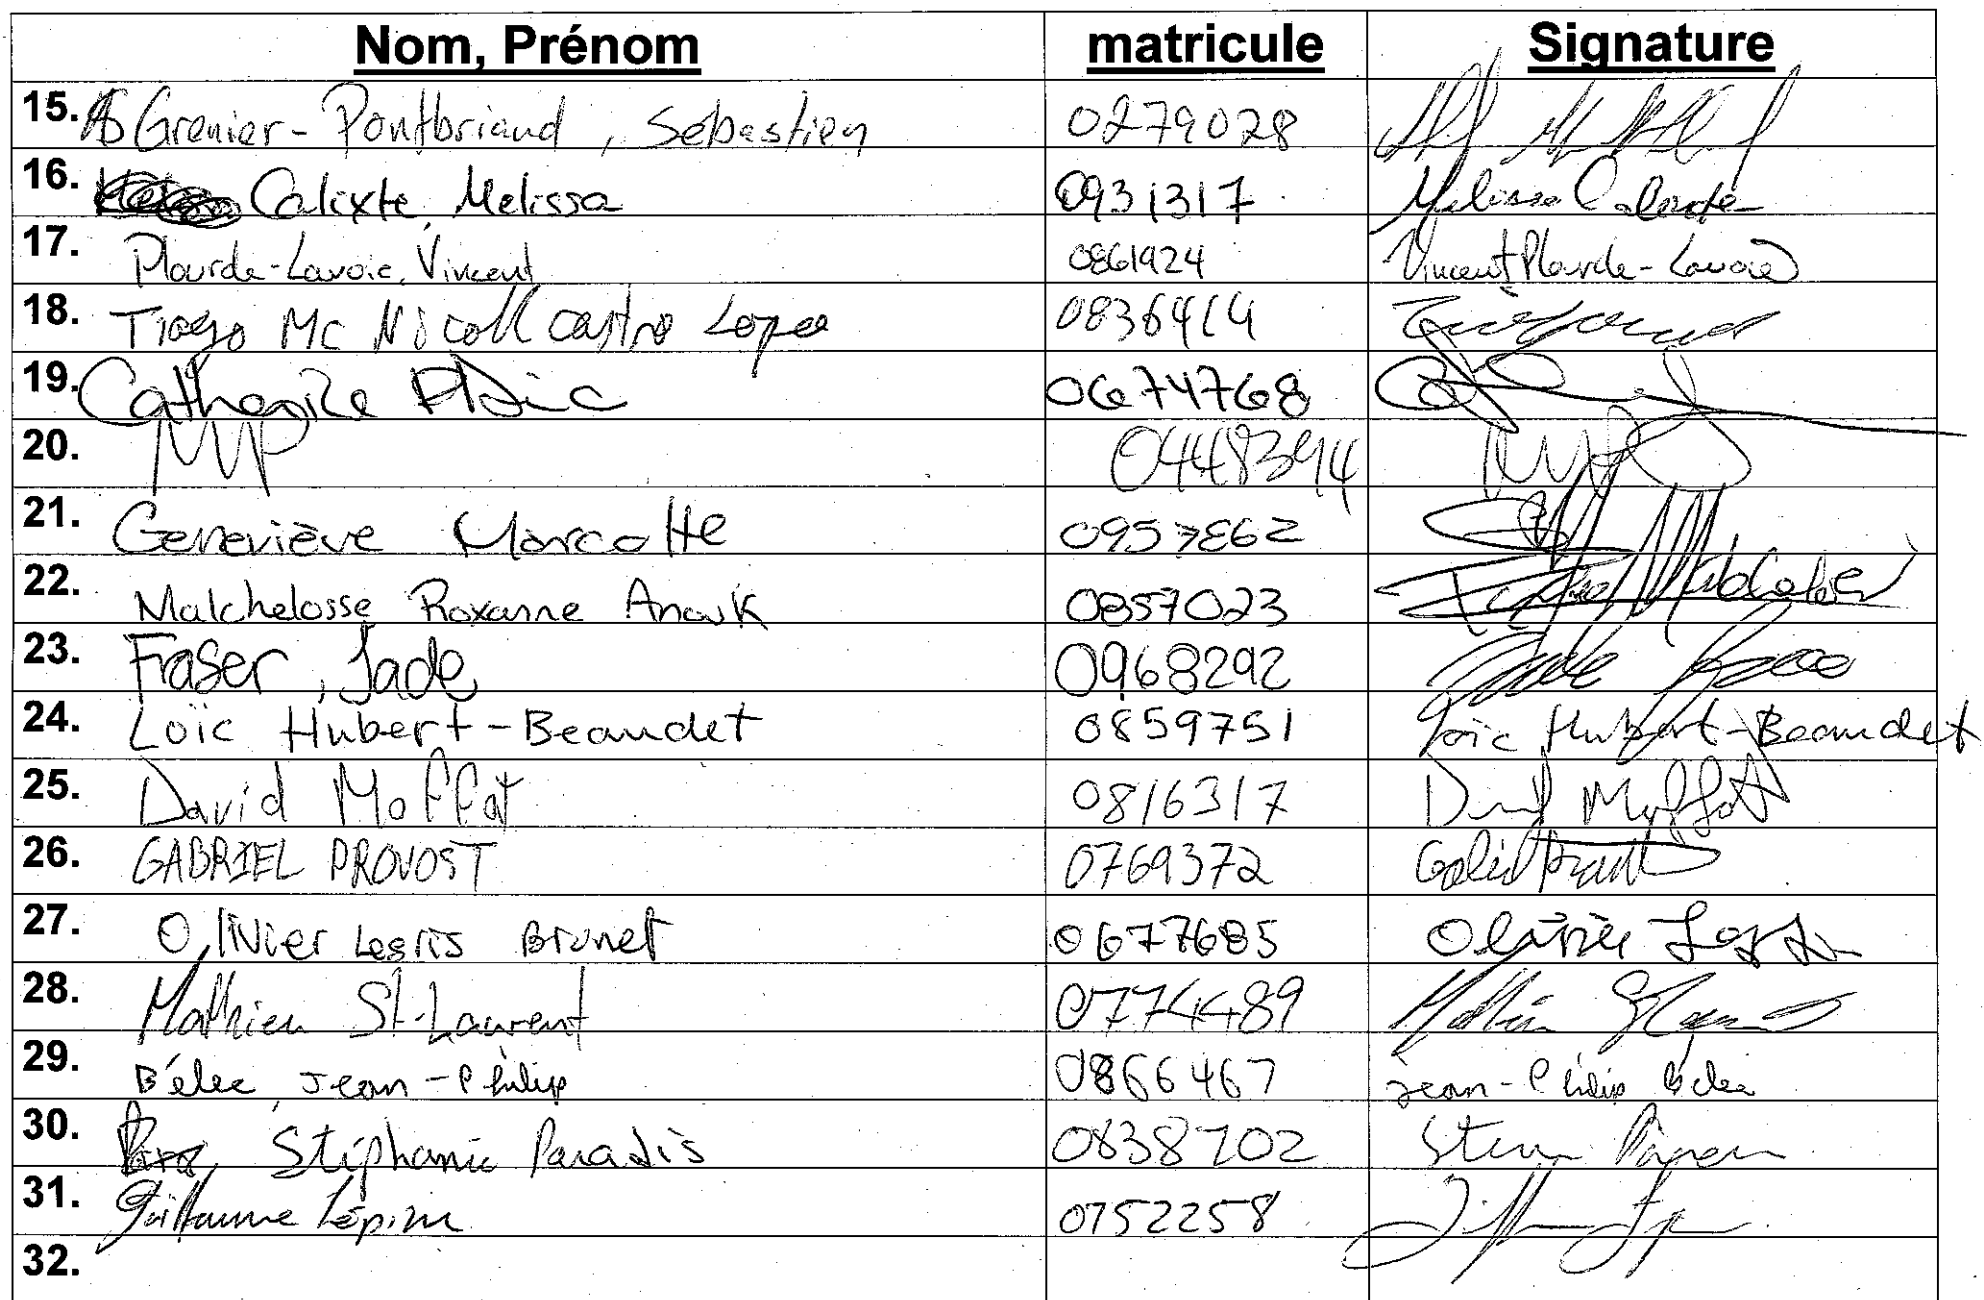 Nom, Prénom matricule Signature
15. Grenier-Pontbriand, Sébastien 0279028
16. Calixte, Melissa 0931317 Melissa
17. Plourde-Lavoie, Vincent 0861924 Vincent Plourde-Lavoie
18. Tiago Mc Nicoll Castro Lopes 0836414
19. Catherine 0674768
20. 0448394
21. Geneviève Marcotte 0957862
22. Malchelosse Roxanne Anouk 0857023
23. Fraser, Jade 0968292 Jade
24. Loïc Hubert-Beaudet 0859751 Loïc Hubert-Beaudet
25. David Moffat 0816317 David Moffat
26. GABRIEL PROVOST 0769372
27. Olivier Legris Brunet 0677685 Olivier
28. Mathieu St-Laurent 0774489 Mathieu
29. Bélec, Jean-Philip 0866467 Jean-Philip Bélec
30. Stéphanie Paradis 0838702
31. Guillaume Lépine 0752258
32.